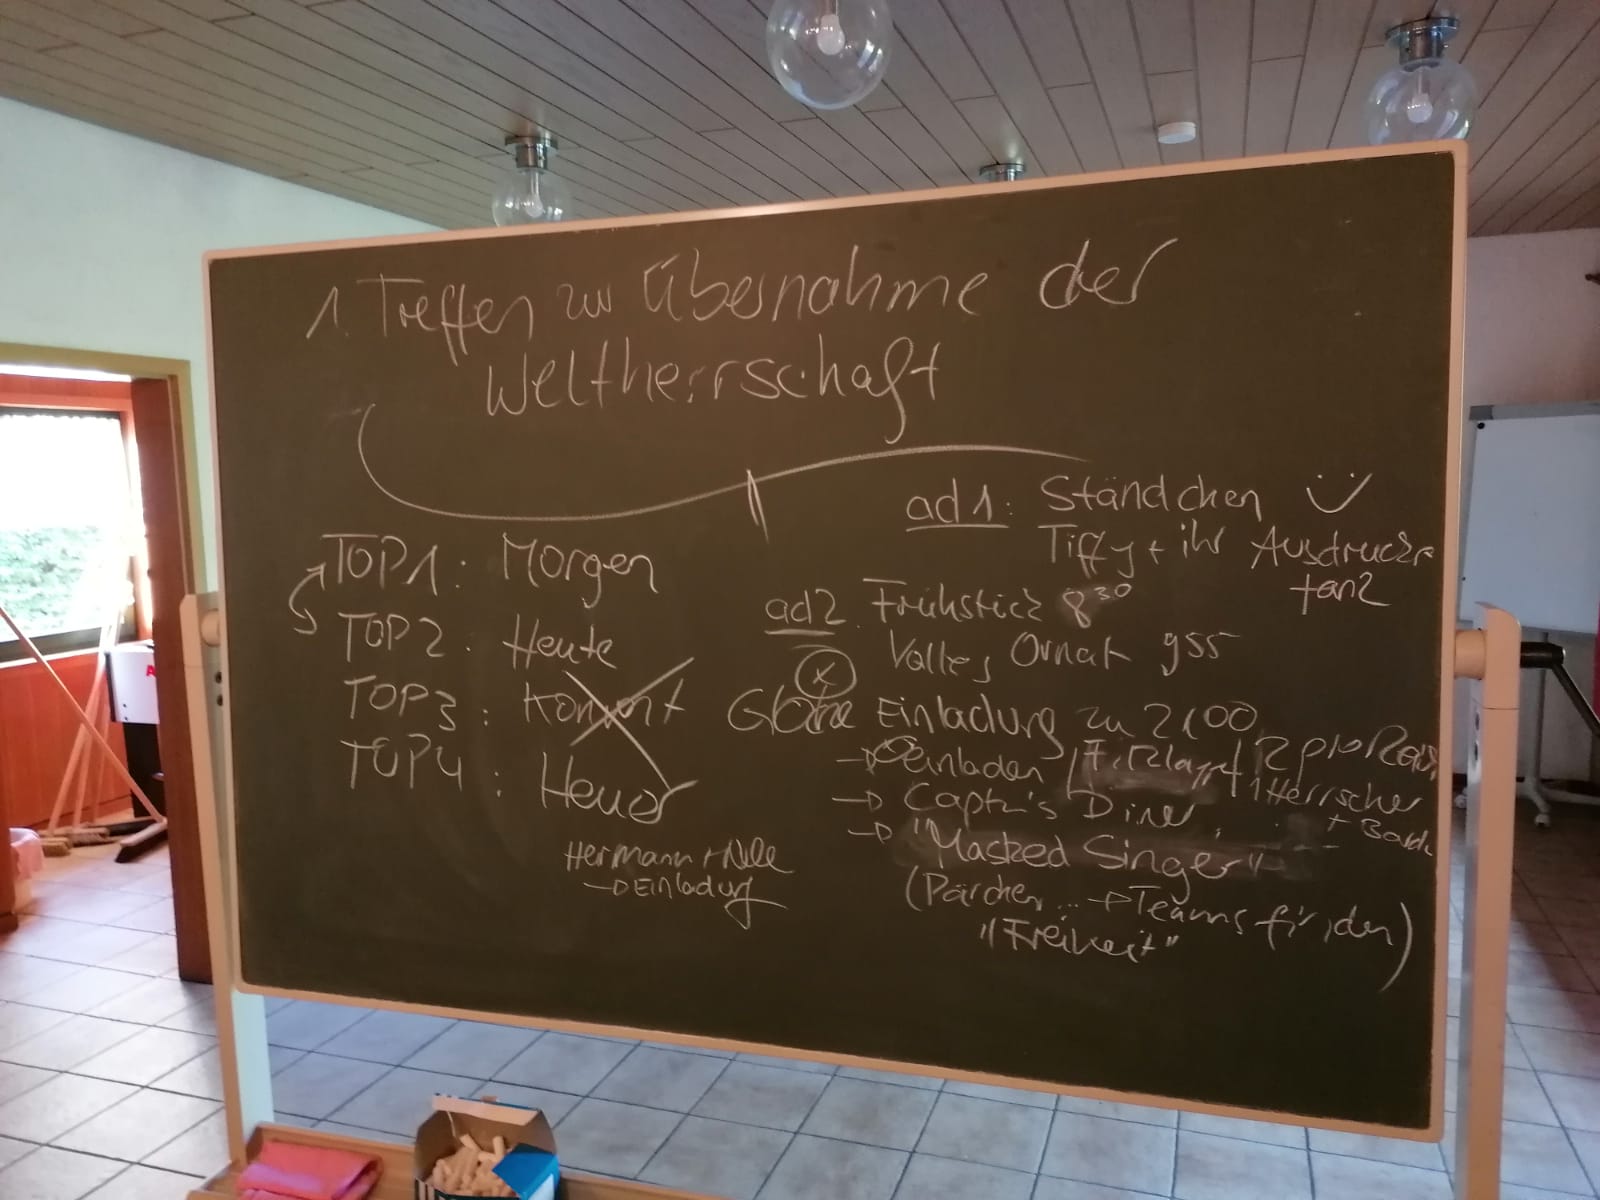 1. Treffen zur Übernahme der
Weltherrschaft
TOP1: Morgen
TOP2: Heute
TOP3: Konvent
TOP4: Heuer
Hermann + Nele
→ Einladung
ad1: Ständchen
Tiffy + ihr Ausdrucks
tanz
ad2. Frühstück 8³⁰
Volles Ornat 9⁵⁵
Einladung zu 21⁰⁰
→ einladen
1 Herrscher
→ Captn's Diner
→ "Masked Singer"
(Pärchen... → Teams für den)
"Freiheit"